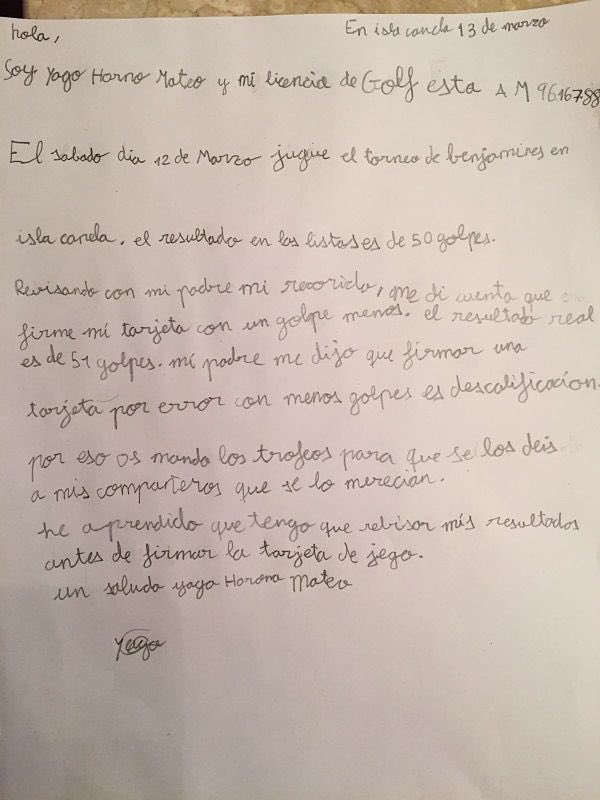 hola,
En isla canela 13 de marzo
Soy Yago Horno Mateo y mi licencia de Golf esta AM96167.88
El sabado dia 12 de Marzo jugue el torneo de benjamines en
isla canela. el resultado en las listas es de 50 golpes.
Revisando con mi padre mi recorido, me di cuenta que
firme mi tarjeta con un golpe menos. el resultado real
es de 51 golpes. mi padre me dijo que firmar una
tarjeta por error con menos golpes es descalificacion.
por eso os mando los trofeos para que se los deis
a mis compañeros que se lo merecian.
he aprendido que tengo que rebisar mis resultados
antes de firmar la tarjeta de jego.
un saludo yago Horona Mateo
Yago